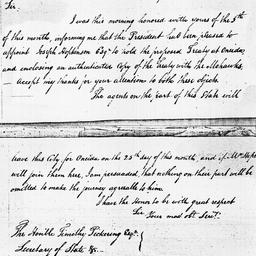 Sir.
I was this morning honored with yours of the 5th
of this month, informing me that the President had been pleased to
appoint Joseph Hopkinson Esqr. to hold the proposed Treaty at Oneida,
and enclosing an authenticated Copy of the Treaty with the Mohawks,
— accept my thanks for your attention to both these objects.
The agents on the part of this State will
leave this City for Oneida on the 25th day of this month, and if Mr. Hopk
will join them here, I am persuaded, that nothing on their part will be
omitted to make the journey agreeable to him.
I have the Honor to be with great respect
Sir
Your most obt. Servt.
The Honble Timothy Pickering Esqr.
Secretary of State &c.